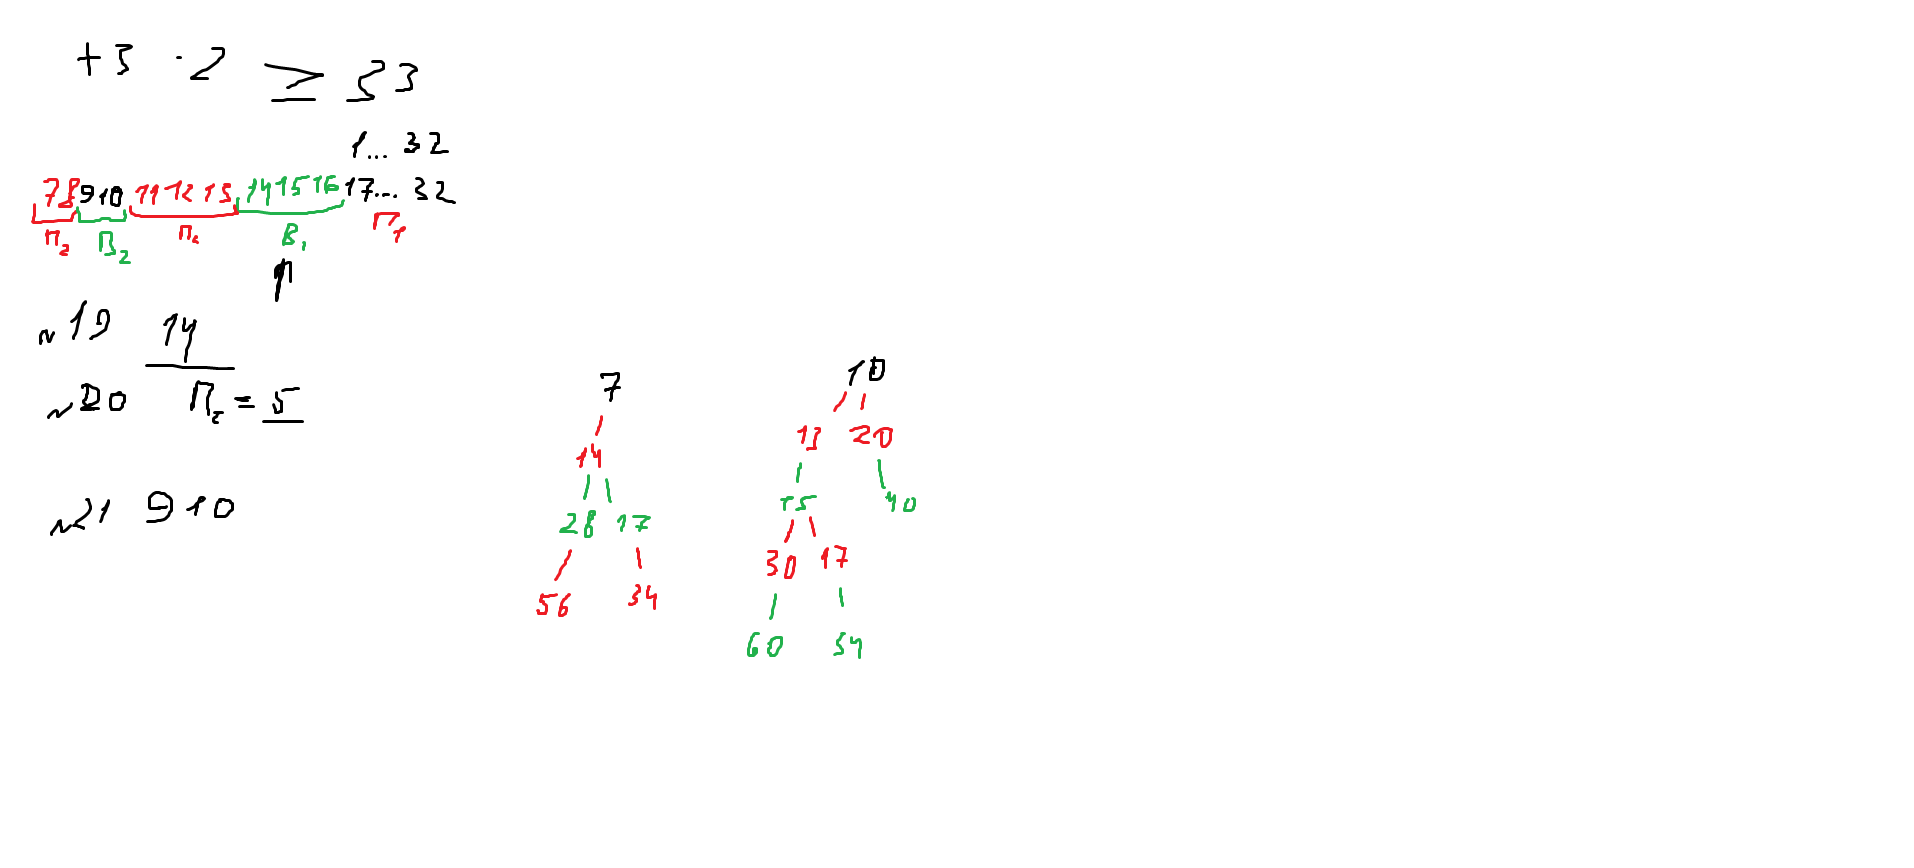 +3 ·2 ≥ 33
1... 32
7 8 9 10 11 12 13 14 15 16 17... 32
П₂ В₂ П₂ В₁ П₁
П
№19 14
№20 П₂ = 5
№21 9 10
7
14
28 17
56 34
10
13 20
15 40
30 17
60 34